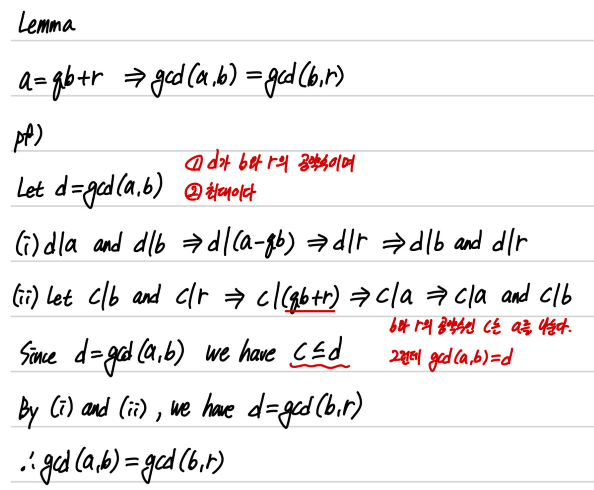 Lemma
a=qb+r ⇒ gcd(a,b)=gcd(b,r)
pf)
① d가 b와 r의 공약수이며
Let d=gcd(a,b) ② 최대이다
(i) d|a and d|b ⇒ d|(a-qb) ⇒ d|r ⇒ d|b and d|r
(ii) Let c|b and c|r ⇒ c|(qb+r) ⇒ c|a ⇒ c|a and c|b
b와 r의 공약수인 c는 a를 나눈다.
Since d=gcd(a,b) we have c≤d 그런데 gcd(a,b)=d
By (i) and (ii), we have d=gcd(b,r)
∴ gcd(a,b)=gcd(b,r)